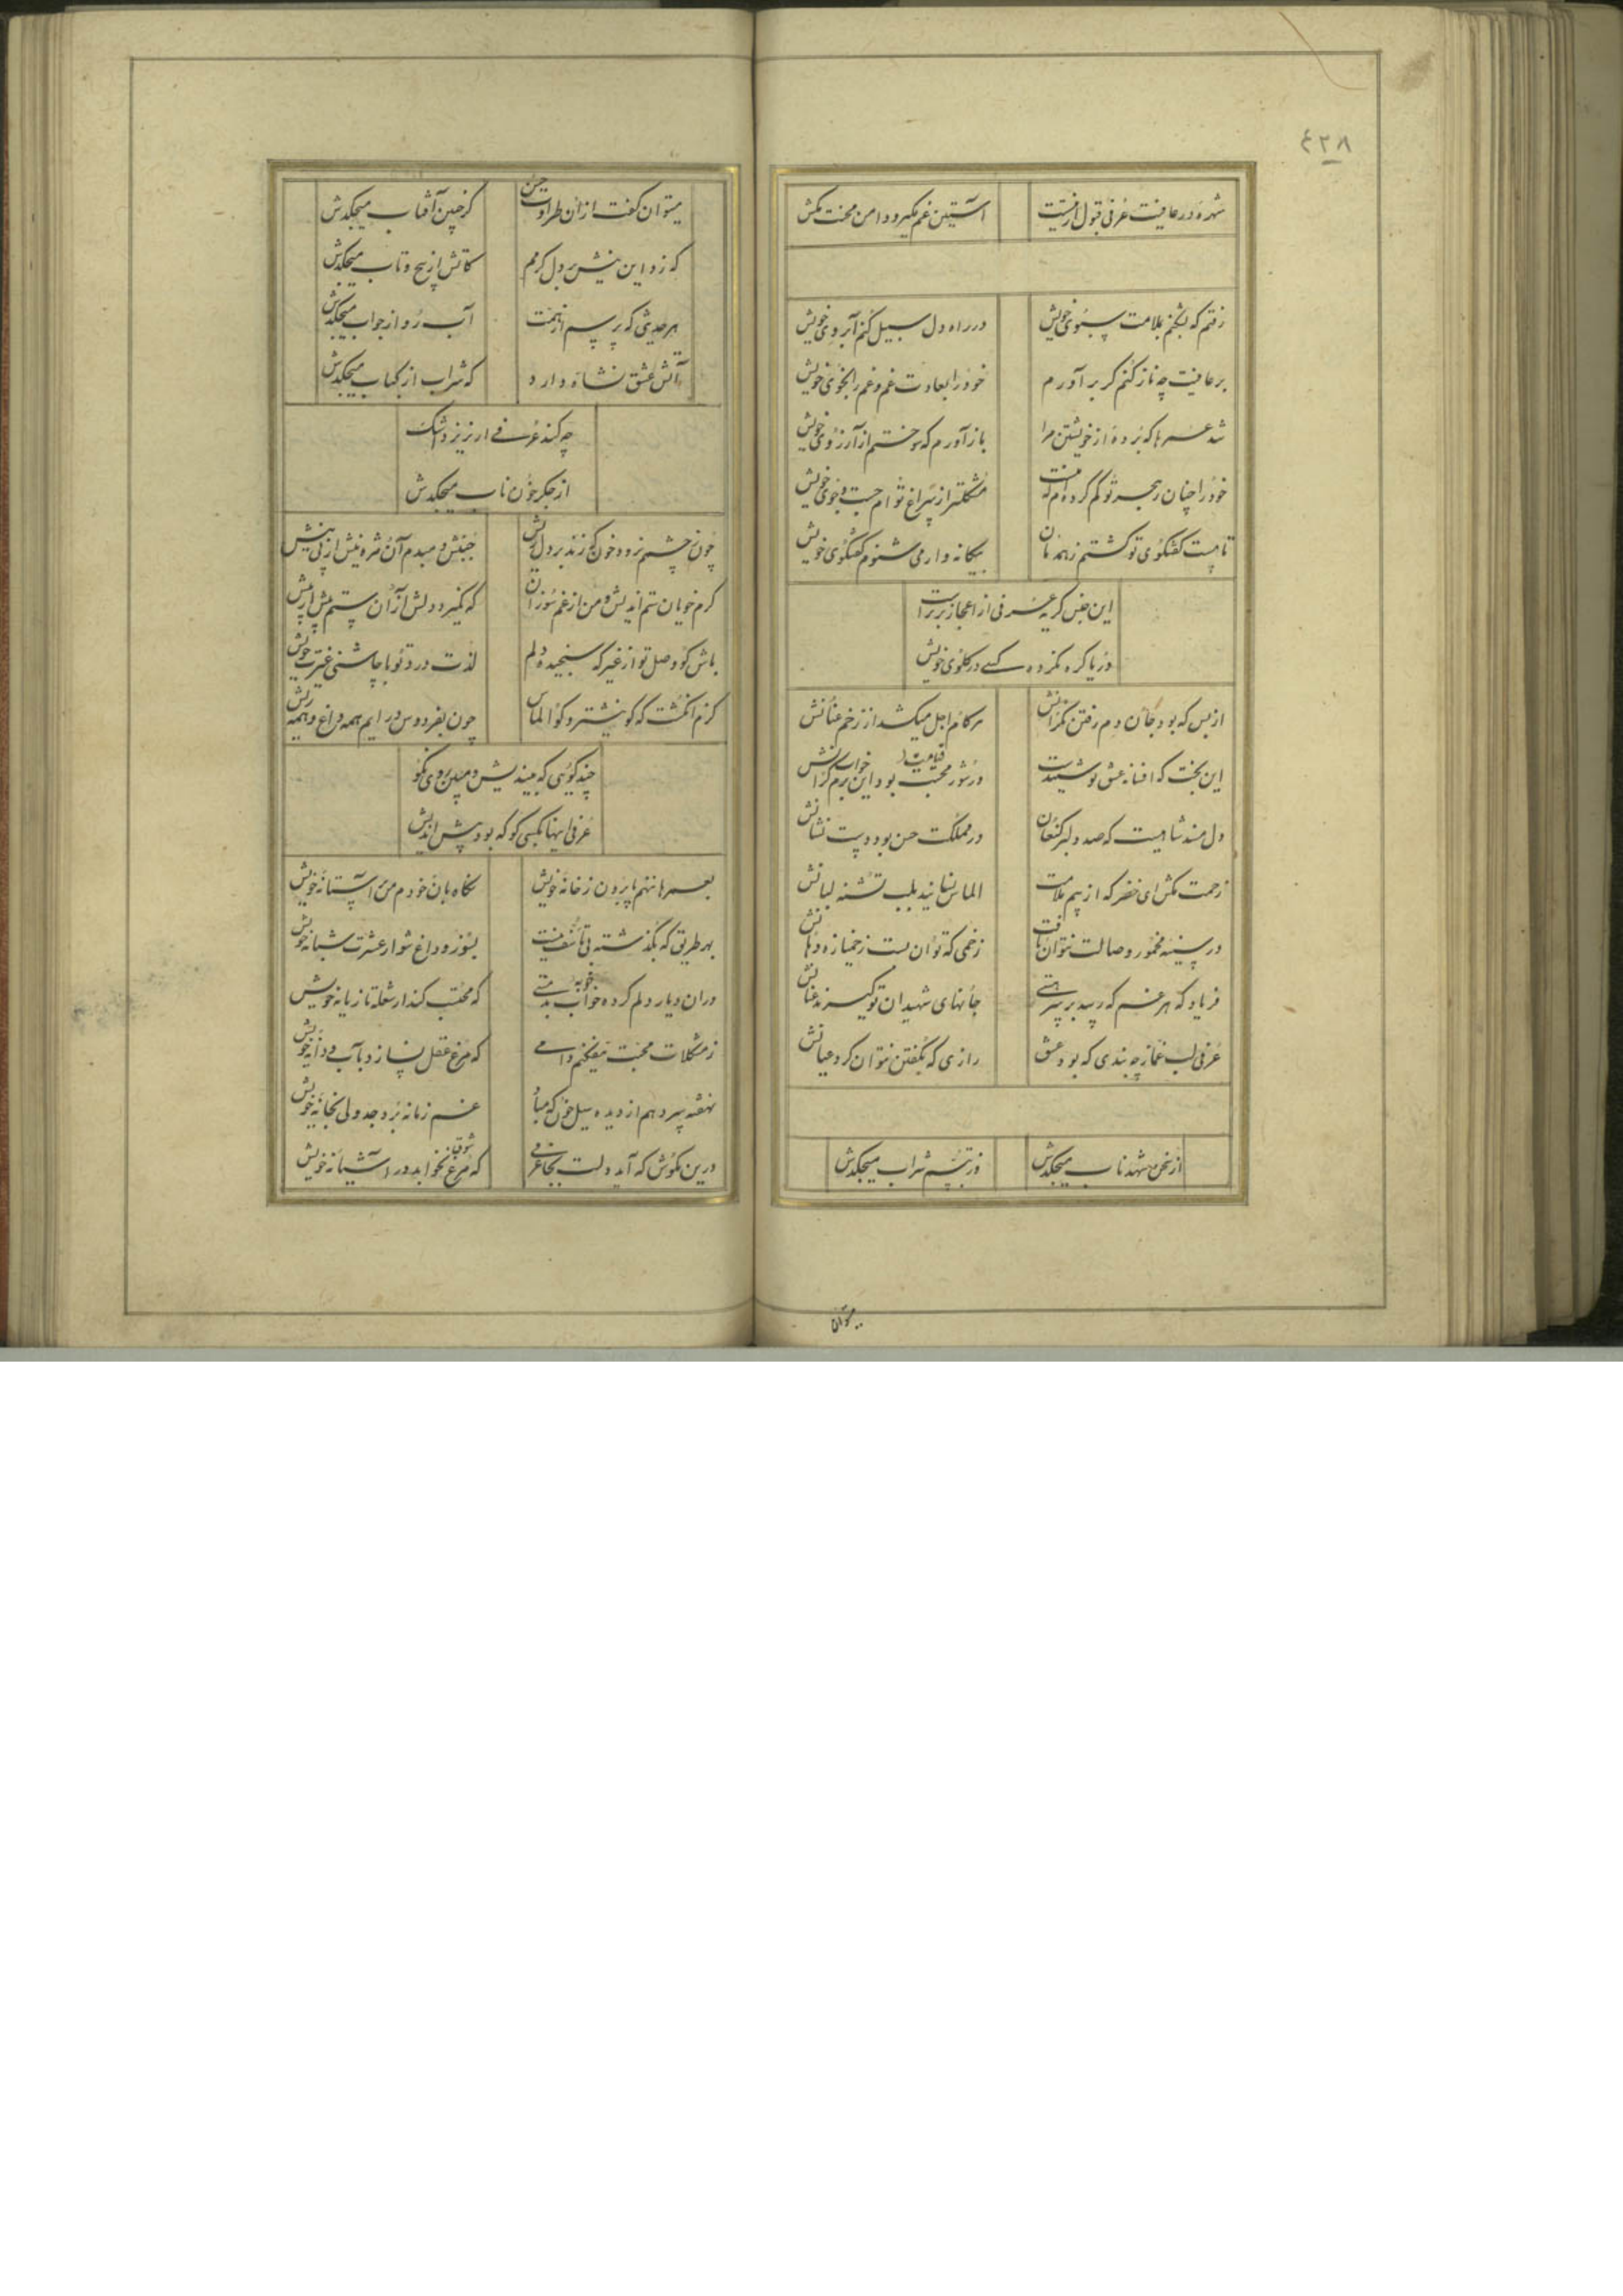 ٤٣٨
شهره در عافیت عرفی قبول ار نیست
آستین غم مگیر و دامن محنت مکش
رفتم که بشکنم بملامت سبوی خویش
در راه دل سبیل کنم آبروی خویش
بر عافیت چه ناز کنم گر بر آورم
خود را بعادت غم و غم را بخوی خویش
شد عمرها که برده از خویشتن مرا
باز آورم که سوختم از آرزوی خویش
خود را چنان بهجر تو گم کرده‌ام که هست
مشکلتر از سراغ توام جست و جوی خویش
تا مست گفتگوی تو گشتم زهر زبان
بیگانه وار می شنوم گفتگوی خویش
این جنس گریه عرفی از اعجاز برتر است
دریا گره نکرده کسی در گلوی خویش
از بس که بود جان دم رفتن نگرانش
در کام اجل میکشد از زخم عنانش
این بخت که افسانه عشق تو شنیدست
در شور قیامت بود این خواب گرانش
دل مسند شاهیست که صد دلبر کنعان
در مملکت حسن بود دست نشانش
زحمت مکش ای خضر که از بیم ملامت
الماس نسایند بلب تشنه لبانش
در سینه مخمور وصالت نتوان یافت
زخمی که توان بست ز خمیازه دهانش
فریاد که هر غم که رسد بر سر هستی
جانهای شهیدان تو گیرند عنانش
عرفی لب غماز چه بندی که بود عشق
رازی که بگفتن نتوان کرد عیانش
از سخن شهد ناب میچکدش
وز تبسم شراب میچکدش
میتوان
میتوان گفت از آن طراوت حسن
کز جبین آفتاب میچکدش
که زد این نیش بر دل گرمم
کاتش از پیچ و تاب میچکدش
هر حدیثی که پرسم از
آب رو از جواب میچکدش
آتش عشق نشاه دارد
که شراب از کباب میچکدش
چه کند عرفی ار نریزد اشک
از جگر خون ناب میچکدش
چون ز چشم نرود خون گر زند بر دل ریش
جنبش دمبدم آن مژه نیش از پی نیش
گرم خویان ستم اندیش و من از غم سوزان
که نگیرد دلش از آن ستم بیش از بیش
باش گو وصل تو از غیر که سنجیده دلم
لذت درد تو با چاشنی غیرت خویش
گرم انگشت که گو نیشتر و گو الماس
چون بفردوس در ایم همه داغ و همه ریش
چند گویی که میندیش و مبین روی نکو
عرفی اینها بکسی گو که بود پیش اندیش
بعمرها ننهم پا برون ز خانه خویش
نگاه بان خودم من بر آستانه خویش
بهر طریق که بگذشته بی تاسف نیست
بسوز و داغ شو از عشرت شبانه خویش
دران دیار دلم کرده خو به بدمستی
که محتسب کند از شعله تازیانه خویش
ز مشکلات محبت نیفکنم دامی
که مرغ عقل نسازد بآب و دانه خویش
نهفته میردهم از دیده سیل خون که مباد
غم زمانه برد جدولی بخانه خویش
درین مکوش که آید دلت بجا عرفی
که مرغ شوق نخوابد در آشیانه خویش